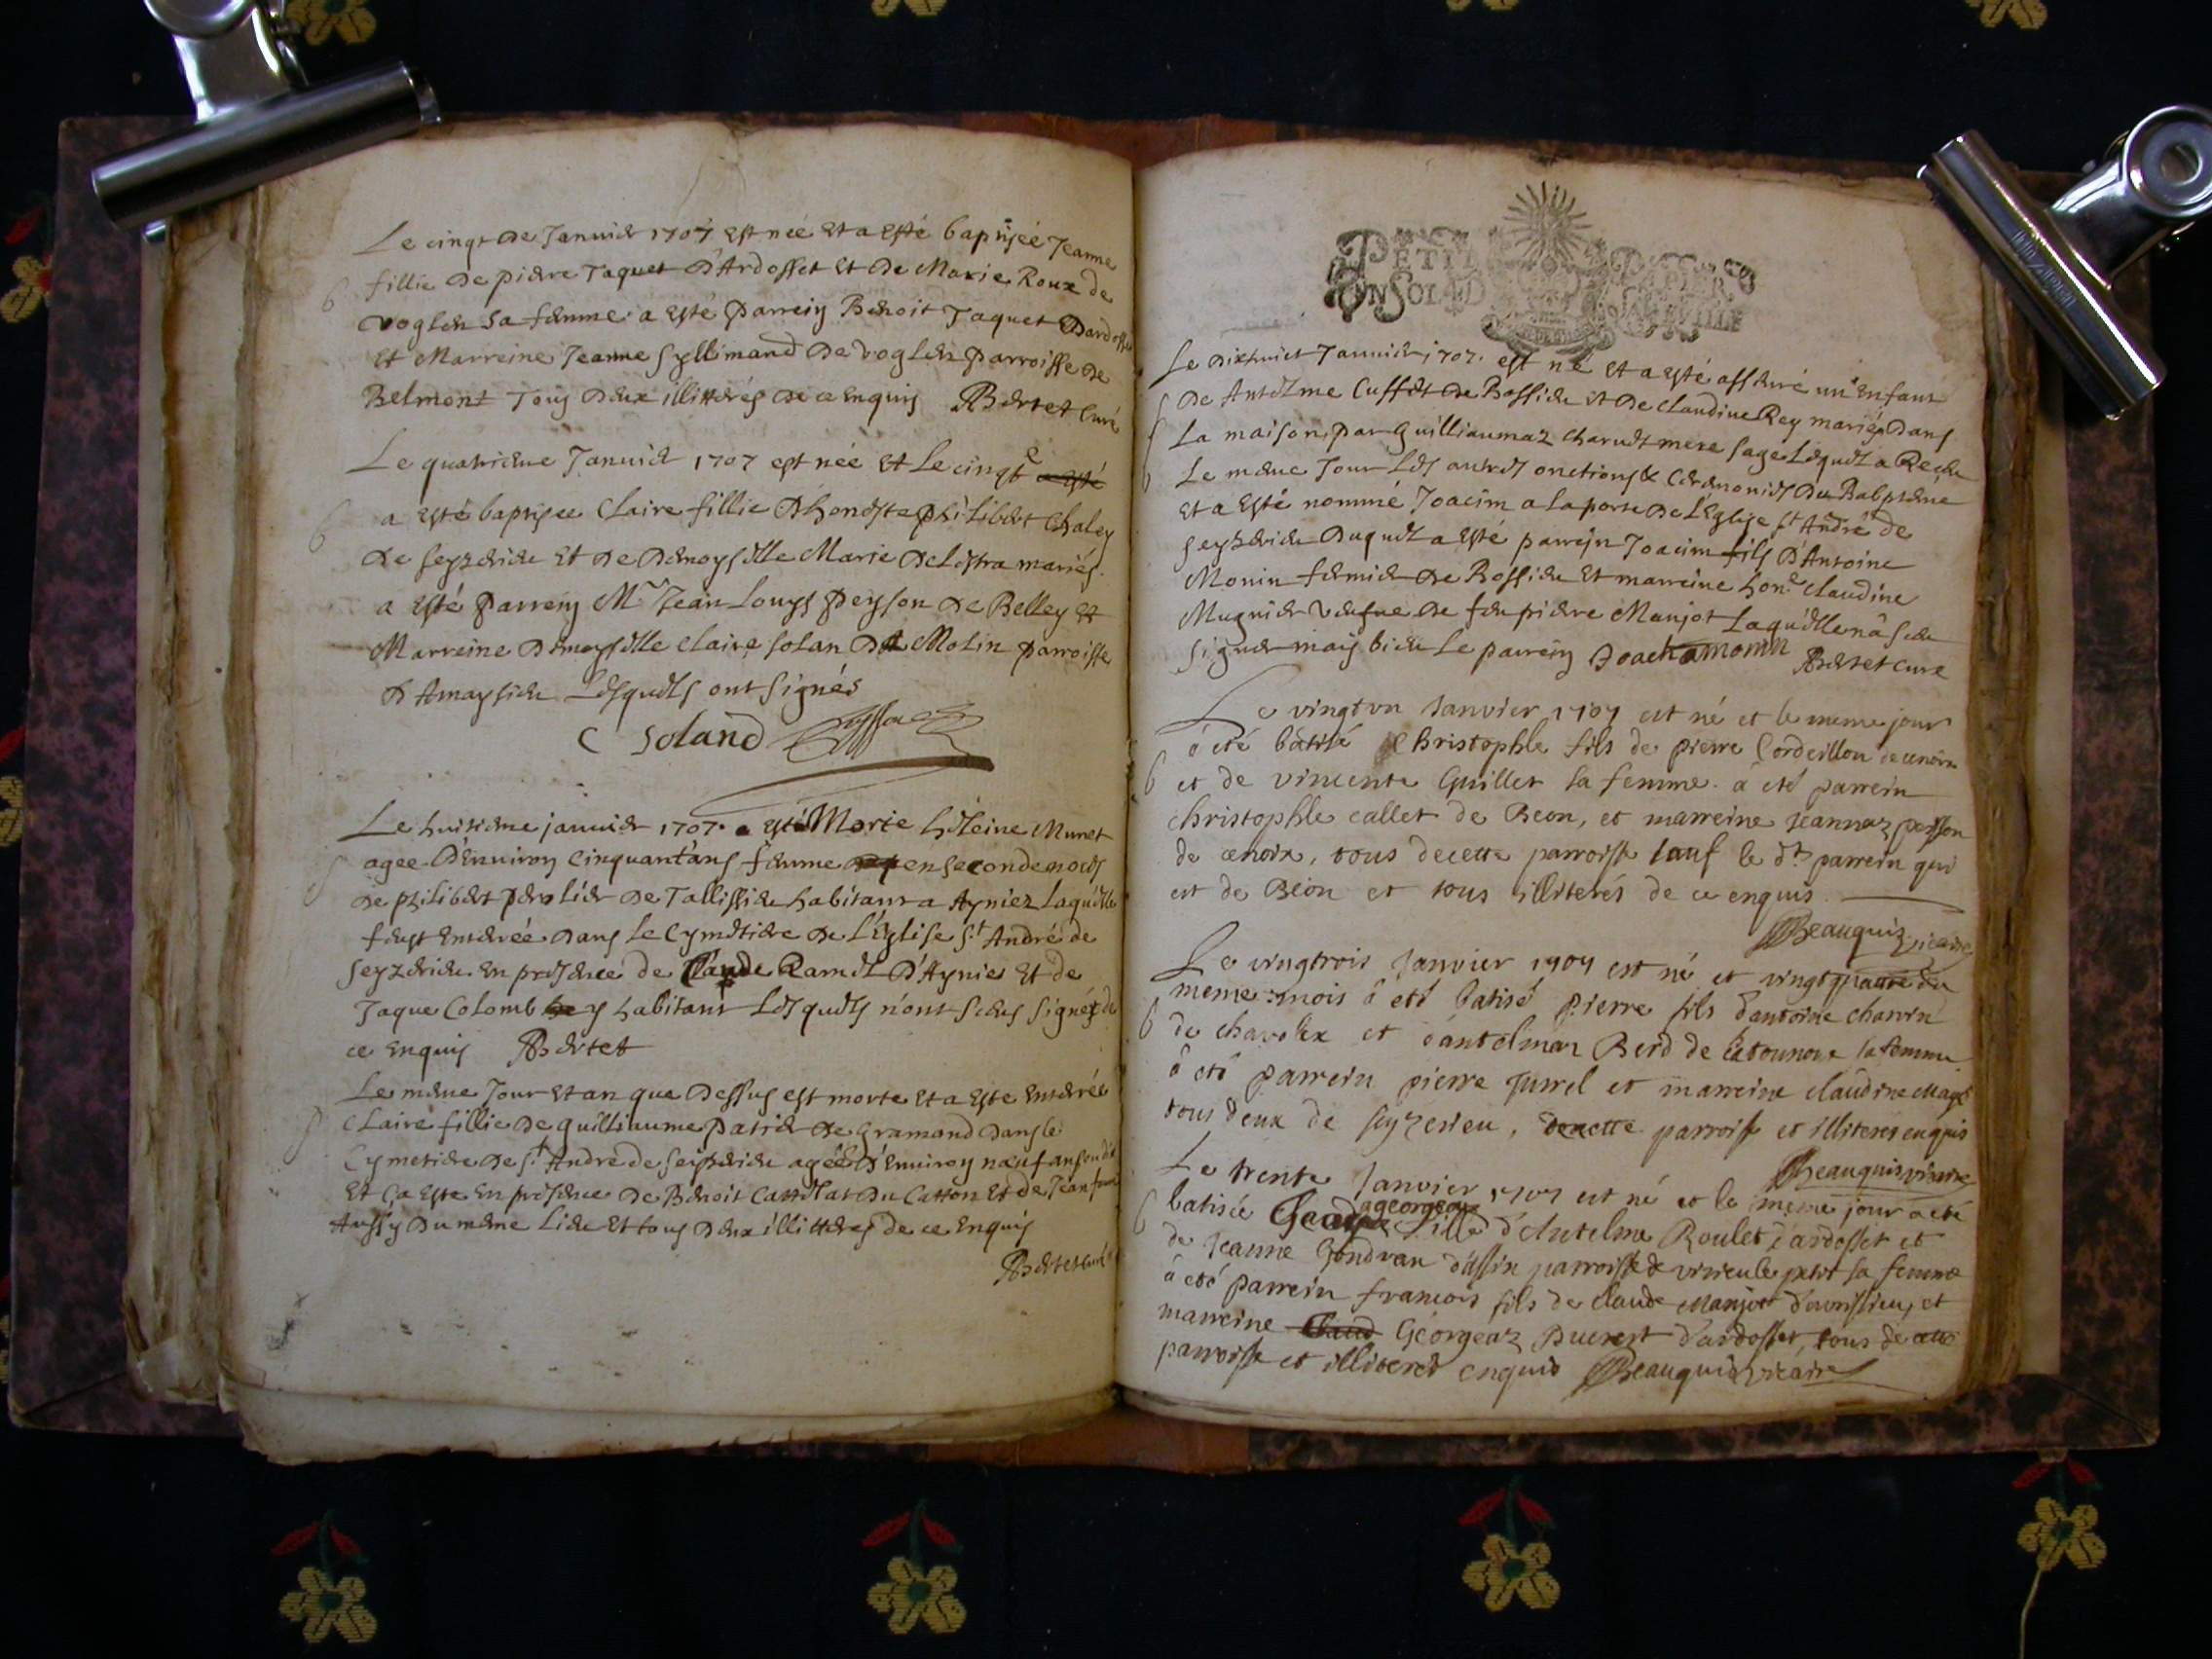 Le cinqt de Janvier 1707 est née et a esté baptisée Jeanne
b fillie de pierre Jaquet d'Ardosset et de Marie Roux de
voglen sa femme a esté parrein Benoit Jaquet dardosset
et Marreine Jeanne Syllimand de voglen parroisse de
Belmont Tous deux illitterés de ce enquis Bertet Curé
Le quatrieme Janvier 1707 est née et Le cinqt e a esté
b a esté baptisee Claire fillie d'honeste philibert Chaley
de seyzerieu et de demoyselle Marie Delestra mariés
a esté parrein Mr Jean Louys peyson de Belley et
Marreine demoyselle Claire solan de Molin parroisse
d'Amaysieu Lesquels ont signés
C Soland
Le huitieme janvier 1707 a esté Morte heleine Munet
agee d'environ cinquant'ans femme en seconde noces
S de philibert de Tallissieu habitant a Ayniez Laquelle
feust enterée dans le Cymetiere de L'église St André de
seyzerieu en presence de Claude Ramel d'Aynie et de
Jaque Colomb y habitant Lesquels n'ont sceus signés de
ce enquis Bertet
Le meme Jour et an que dessus est morte et a este enterée
Claire fillie de guilliaume patrier de gramand dans le
Cymetiere de St André de seyzerieu agée d'environ neuf ans
et ça este en presence de Benoit Cattelat du Catton et de Jean
Aussy du meme lieu et tous deux illitterés de ce enquis
Bertet curé
PETIT PAPIER
UN SOL 4 D LA FEVILLE
Le dixhuict Janvier 1707. est né et a esté un enfant
de Antelme Cuffet de Bossieu et de Claudine Rey mariés dans
La maison par guilliaumaz Charvet mere sage Lequel a Receu
b Le meme Jour Les autres onctions & Ceremonies du Bapteme
et a esté nommé Joacim a la porte de L'église St André de
seyzerieu duquel a esté parrein Joacim fils d'Antoine
Monin fermier de Bossieu et marreine hone Claudine
Mugnier veufue de feu pierre Manjot Laquelle n'a sceu
signer mais bien Le parrein Joachamonin Bertet Curé
Le vingtun Janvier 1707 est né et le meme jour
a été batisé Christophle fils de pierre Cordeillon de cenoix
b et de vincente Guillet sa femme. a été parrein
christophle callet de Beon, et marreine Jeannaz
de cenoix, tous decette parroisse sauf le dt parrein qui
est de Beon et tous illiterés de ce enquis.
Beauquis vicaire
Le vingtrois Janvier 1707 est né et vingtquatre du
meme mois a été batisé pierre fils d'antoine charvin
b de chavolex et d'antelmaz Berd de la tournoux sa femme
a été parrein pierre Jurrel et marreine claudine
tous deux de seyzerieu, decette parroisse et illiterés enquis
Beauquis vicaire
Le trente Janvier 1707 est né et le meme jour a été
b batisée georgeaz fille d'Antelme Roulet d'ardosset et
de Jeanne Gondran d'assin parroisse de virieu le petit sa femme
a été parrein francois fils de claude Manjot d'avrissieu, et
marreine Claud Georgeaz Ducrest d'ardosset, tous de cette
parroisse et illiterés enquis Beauquis vicaire